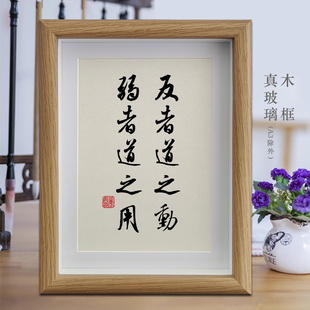 反者道之動
弱者道之用
木框
真玻璃
(A3除外)